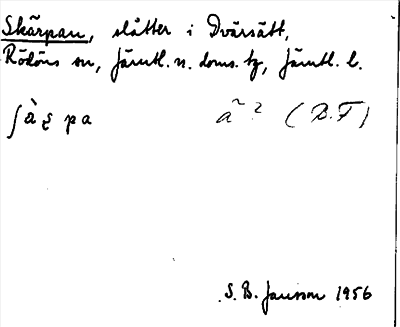 Skärpan, slåtter i Dvärsätt,
Rödöns sn, Jämtl. n. doms. tg, Jämtl. l.
ʃàʂpa ã? (B.F)
S. B. Jansson 1956